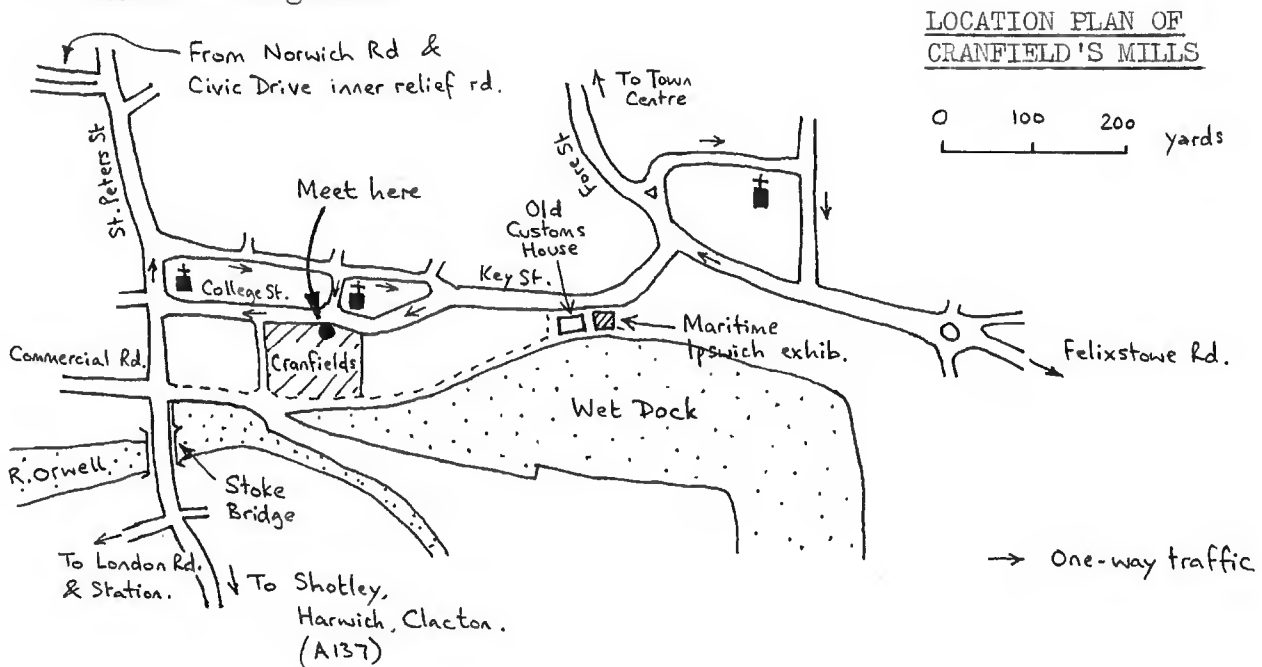 LOCATION PLAN OF
CRANFIELD'S MILLS
0 100 200 yards
From Norwich Rd &
Civic Drive inner relief rd.
To Town
Centre
St. Peters St
Fore St
Meet here
Old
Customs
House
Key St.
College St.
Maritime
Ipswich exhib.
Commercial Rd.
Cranfields
Felixstowe Rd.
Wet Dock
R. Orwell
Stoke
Bridge
To London Rd.
& Station.
To Shotley,
Harwich, Clacton.
(A137)
→ One-way traffic